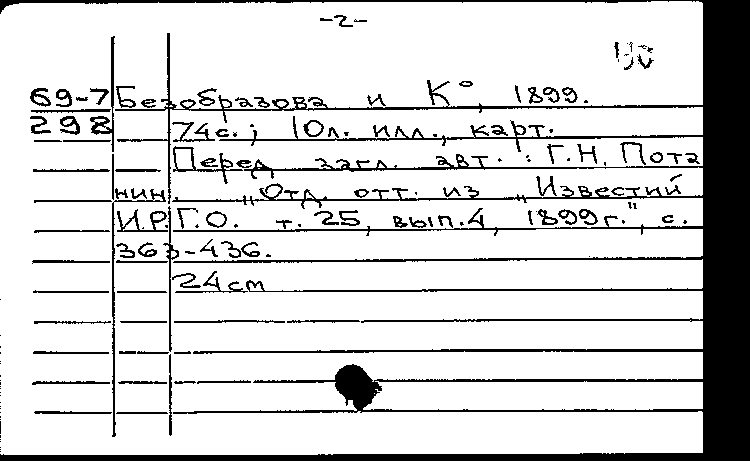 -2-
69-7 Безобразова и К°, 1899.
298 74с.; 10л. илл., карт.
Перед загл. авт.: Г.Н. Пота
нин. „Отд. отт. из „Известий
И.Р.Г.О. т. 25, вып.4, 1899г.", с.
363-436.
24cm